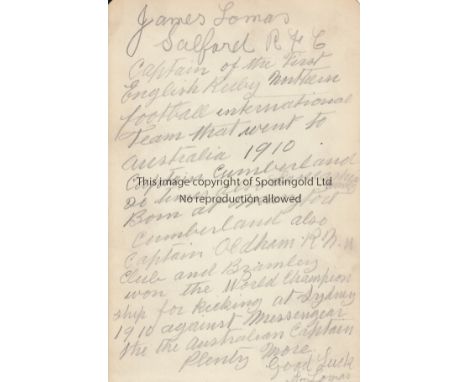 James Lomas
Salford R F C
Captain of the First
English Rugby Northern
football international
Team that went to
Australia 1910
Captain Cumberland
This image copyright of Sportingold Ltd
No reproduction allowed
Born at
Cumberland also
Captain Oldham R.
Club and Bramley
won the World Champion
ship for kicking at Sydney
1910 against Messenger
the the Australian Captain
Plenty More
Good Luck
Lomas